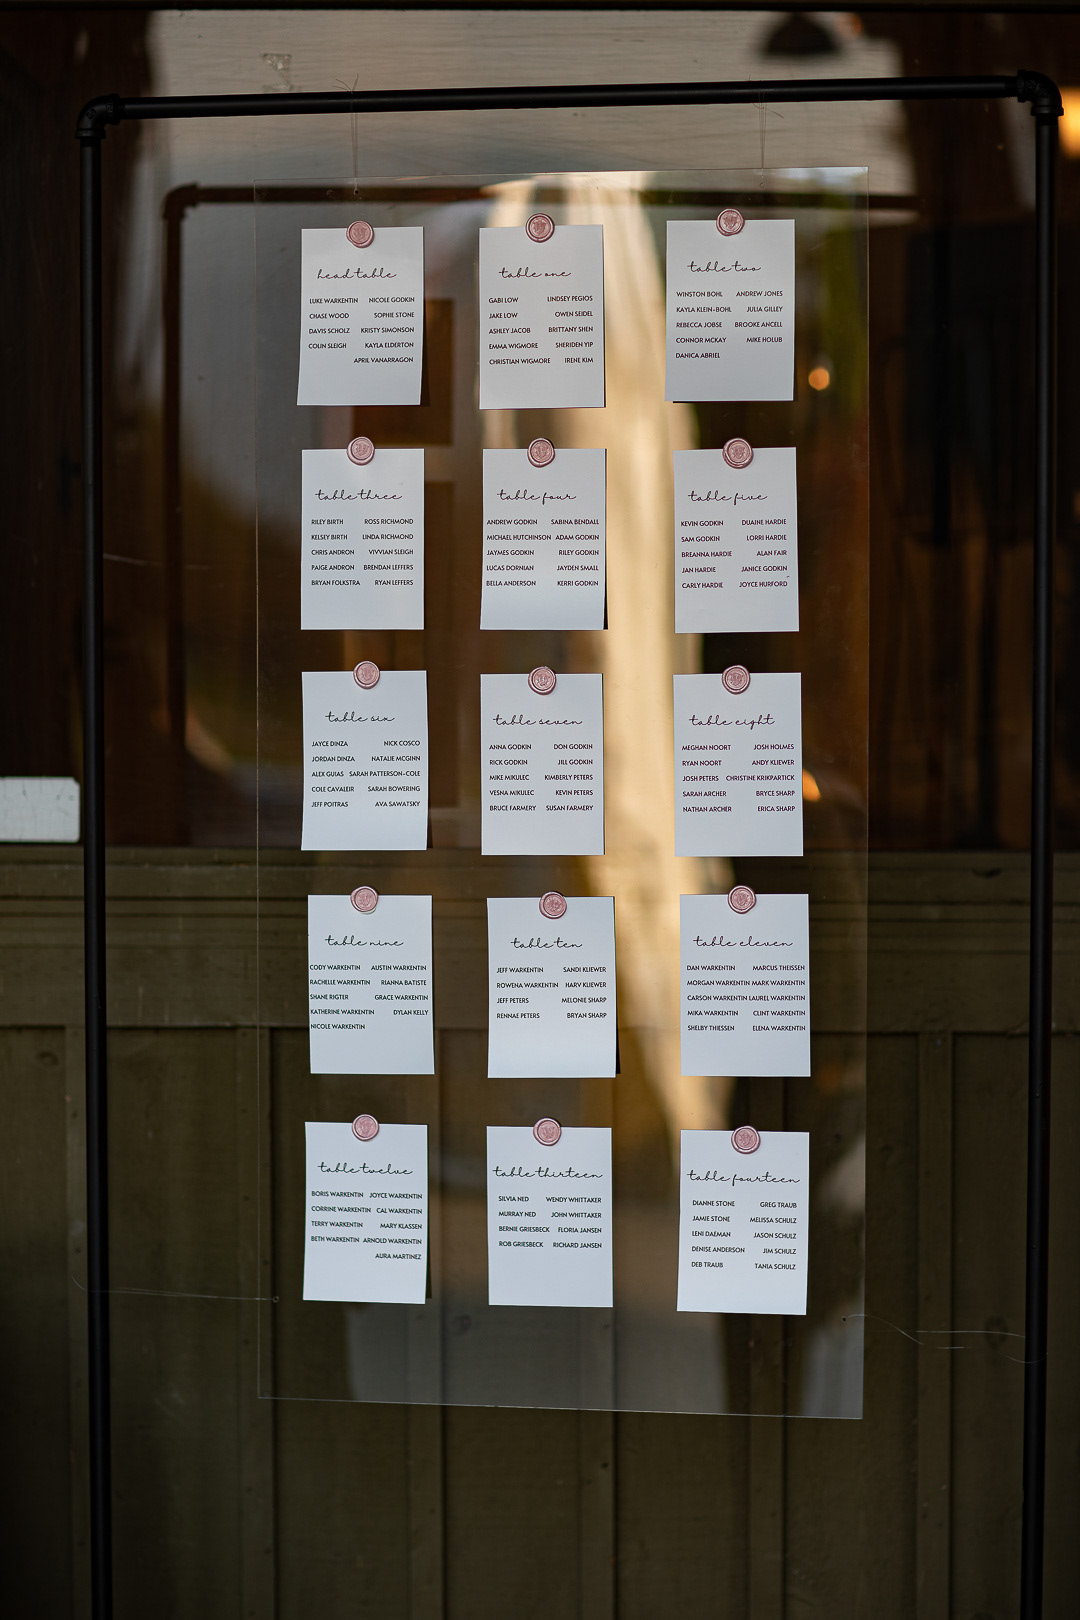 head table
LUKE WARKENTIN NICOLE GODKIN
CHASE WOOD SOPHIE STONE
DAVIS SCHOLZ KRISTY SIMONSON
COLIN SLEIGH KAYLA ELDERTON
APRIL VANARRAGON
table one
GABI LOW LINDSEY PEGIOS
JAKE LOW OWEN SEIDEL
ASHLEY JACOB BRITTANY SHEN
EMMA WIGMORE SHERIDEN YIP
CHRISTIAN WIGMORE IRENE KIM
table two
WINSTON BOHL ANDREW JONES
KAYLA KLEIN-BOHL JULIA GILLEY
REBECCA JOBSE BROOKE ANCELL
CONNOR MCKAY MIKE HOLUB
DANICA ABRIEL
table three
RILEY BIRTH ROSS RICHMOND
KELSEY BIRTH LINDA RICHMOND
CHRIS ANDRON VIVVIAN SLEIGH
PAIGE ANDRON BRENDAN LEFFERS
BRYAN FOLKSTRA RYAN LEFFERS
table four
ANDREW GODKIN SABINA BENDALL
MICHAEL HUTCHINSON ADAM GODKIN
JAYMES GODKIN RILEY GODKIN
LUCAS DORNIAN JAYDEN SMALL
BELLA ANDERSON KERRI GODKIN
table five
KEVIN GODKIN DUAINE HARDIE
SAM GODKIN LORRI HARDIE
BREANNA HARDIE ALAN FAIR
JAN HARDIE JANICE GODKIN
CARLY HARDIE JOYCE HURFORD
table six
JAYCE DINZA NICK COSCO
JORDAN DINZA NATALIE MCGINN
ALEX GUIAS SARAH PATTERSON-COLE
COLE CAVALEIR SARAH BOWERING
JEFF POITRAS AVA SAWATSKY
table seven
ANNA GODKIN DON GODKIN
RICK GODKIN JILL GODKIN
MIKE MIKULEC KIMBERLY PETERS
VESNA MIKULEC KEVIN PETERS
BRUCE FARMERY SUSAN FARMERY
table eight
MEGHAN NOORT JOSH HOLMES
RYAN NOORT ANDY KLIEWER
JOSH PETERS CHRISTINE KRIKPARTICK
SARAH ARCHER BRYCE SHARP
NATHAN ARCHER ERICA SHARP
table nine
CODY WARKENTIN AUSTIN WARKENTIN
RACHELLE WARKENTIN RIANNA BATISTE
SHANE RIGTER GRACE WARKENTIN
KATHERINE WARKENTIN DYLAN KELLY
NICOLE WARKENTIN
table ten
JEFF WARKENTIN SANDI KLIEWER
ROWENA WARKENTIN HARV KLIEWER
JEFF PETERS MELONIE SHARP
RENNAE PETERS BRYAN SHARP
table eleven
DAN WARKENTIN MARCUS THEISSEN
MORGAN WARKENTIN MARK WARKENTIN
CARSON WARKENTIN LAUREL WARKENTIN
MIKA WARKENTIN CLINT WARKENTIN
SHELBY THIESSEN ELENA WARKENTIN
table twelve
BORIS WARKENTIN JOYCE WARKENTIN
CORRINE WARKENTIN CAL WARKENTIN
TERRY WARKENTIN MARY KLASSEN
BETH WARKENTIN ARNOLD WARKENTIN
AURA MARTINEZ
table thirteen
SILVIA NED WENDY WHITTAKER
MURRAY NED JOHN WHITTAKER
BERNIE GRIESBECK FLORIA JANSEN
ROB GRIESBECK RICHARD JANSEN
table fourteen
DIANNE STONE GREG TRAUB
JAMIE STONE MELISSA SCHULZ
LENI DAEMAN JASON SCHULZ
DENISE ANDERSON JIM SCHULZ
DEB TRAUB TANIA SCHULZ